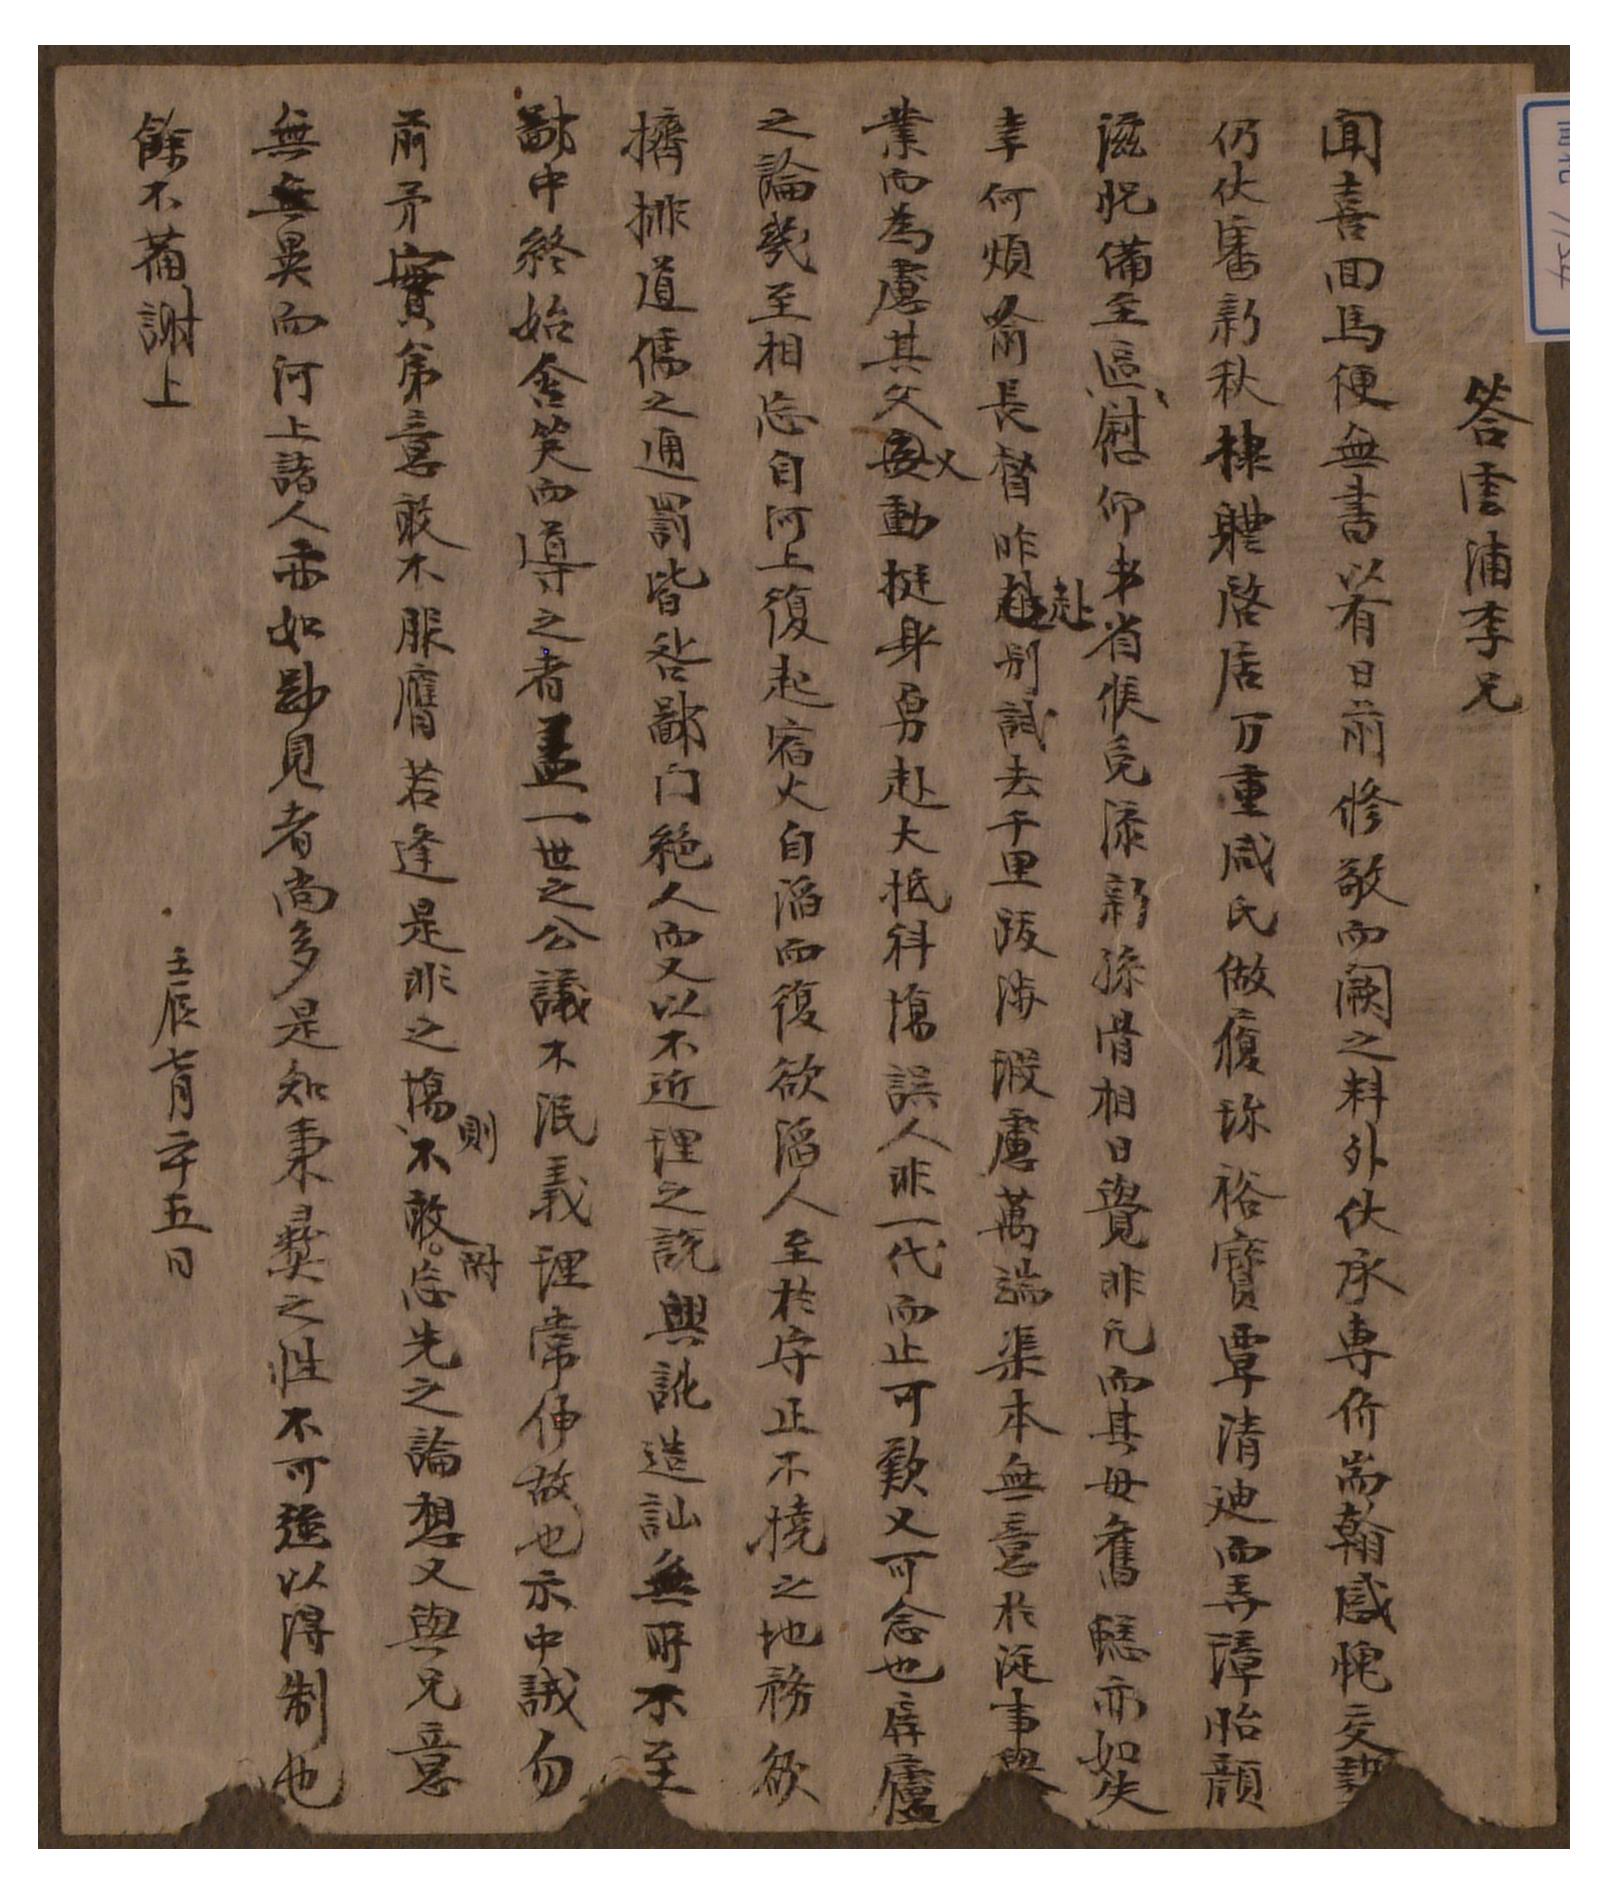 答雲浦李兄
聞喜回馬便無書以有日前修敬而闕之料外伏承專价耑翰感愧交
仍伏審新秋棣軆啓居万重咸氏做履珎裕寶覃清迪而弄璋怡顔
滋貺備至區〻慰仰弟省候免添新孫骨相日覺非凡而其母舊𩔗亦如失
幸何煩喩長督昨赴別試去千里跋涉瑕慮萬端渠本無意於涎事與
業而為慮其父妄動挺身勇赴大抵科塲誤人非一代而止可歎又可念也屏廬
之論幾至相忘自河上復起宿火自滔而復欲滔人至於守正不撓之地務欲
擠排道儒之通罰皆咎鄙门絶人而又以不近理之說興訛造訕無所不至
鄙中終始含笑而導之者盖一世之公議不泯義理常伸故也示中誡勿
前矛實弟意敢不服膺若逢是非之塲則不敢附忘先之論想又與兄意
無異而河上諸人亦如勘見者尚多是知秉彛之性不可強以得制也
餘不葡謝上
壬辰七月二十五日